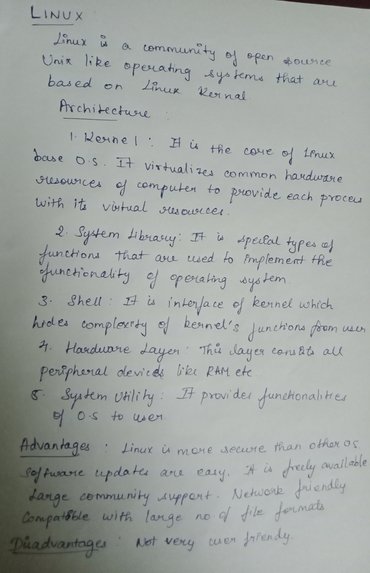 LINUX
Linux is a community of open source
Unix like operating systems that are
based on Linux Kernal
Architecture
1. Kernel : It is the core of Linux
base O.S. It virtualizes common hardware
resources of computer to provide each process
with its virtual resources.
2. System Library : It is special types of
functions that are used to implement the
functionality of operating system
3. Shell : It is interface of kernel which
hides complexity of kernel's functions from user
4. Hardware Layer : This layer consists all
peripheral devices like RAM etc
5. System Utility : It provides functionalities
of O.S to user
Advantages : Linux is more secure than other OS
Software updates are easy. It is freely available
Large community support. Network friendly
Compatible with large no of file formats
Disadvantages : Not very user friendy.